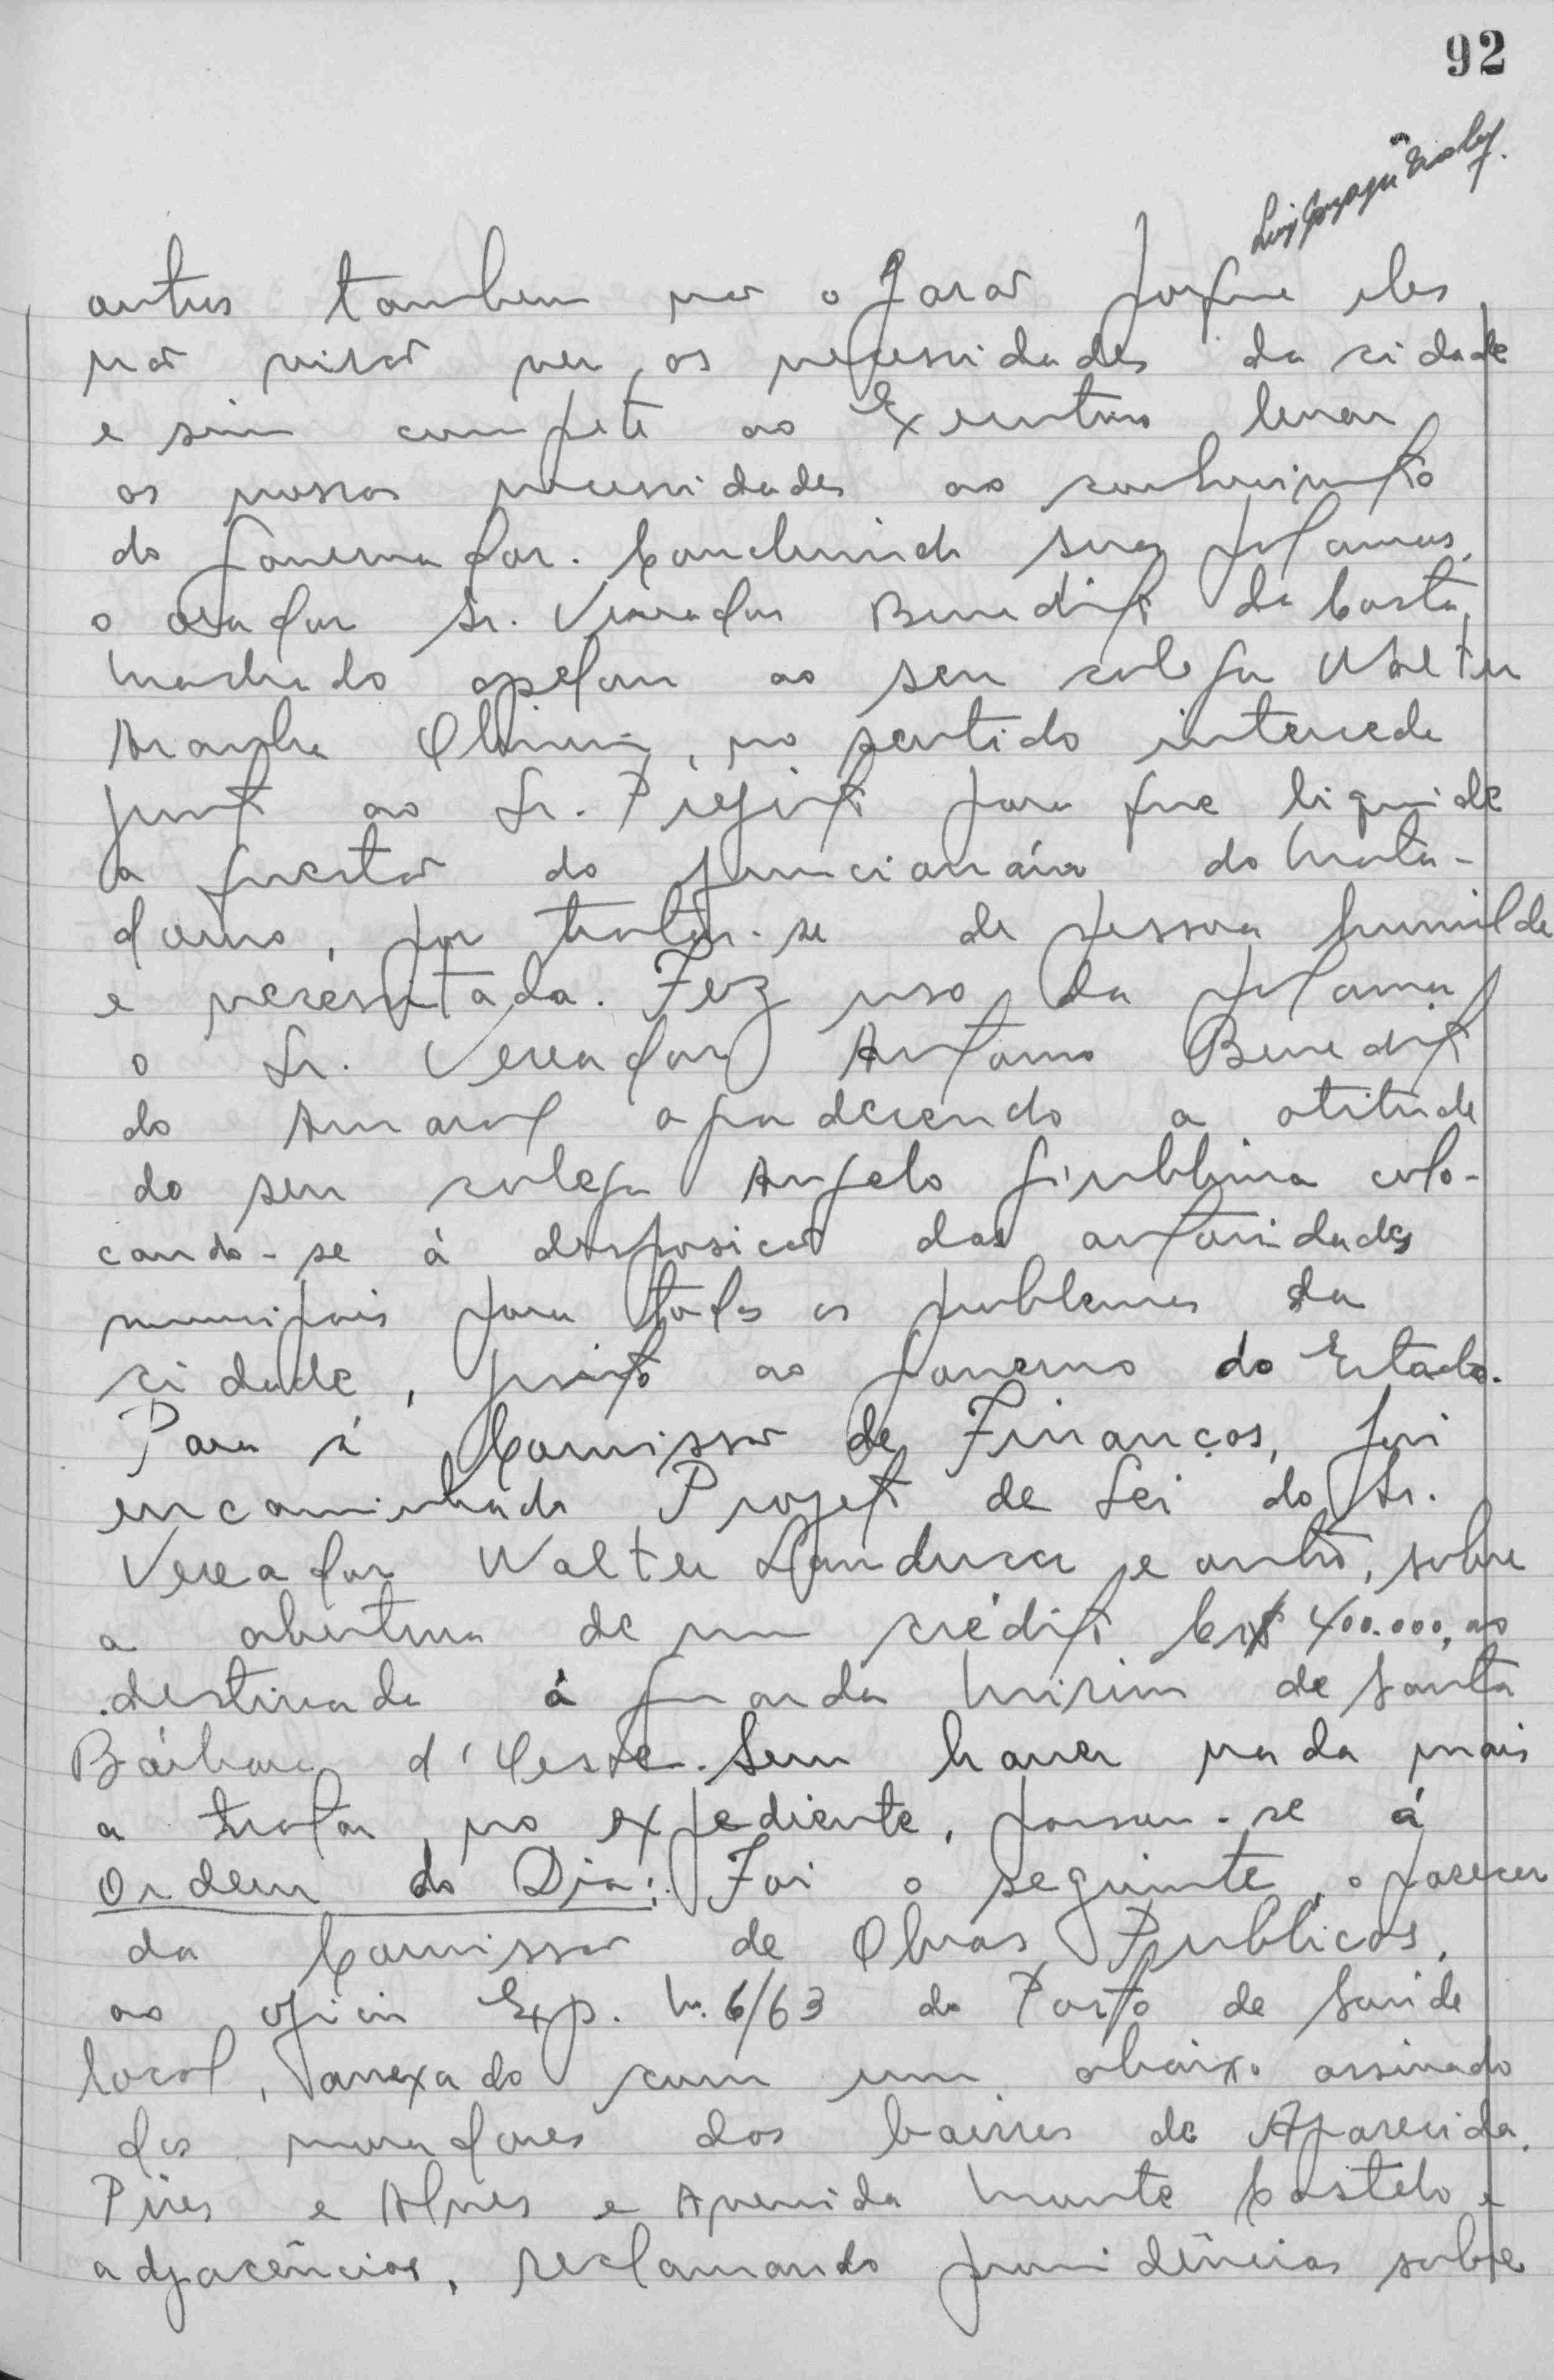 92
Luiz Gonzaga
outros tambem não o farão porque eles
não virão ver os necessidades da cidade
e sim compete ao Executivo levar
as nossas necessidades ao conhecimento
do Governador. Concluindo suas palavras,
o orador Sr. Vereador Benedito da Costa
Machado apelou ao seu colega Walter
Aranha Oliveira, no sentido interceda
junto ao Sr. Prefeito para que liquide
a questão do funcionário do Mata-
douro, por tratar-se de pessoa humilde
e necessitada. Fez uso da palavra
o Sr. Vereador Antonio Benedito
do Amaral agradecendo a atitude
do seu colega Angelo Giubbina colo-
cando-se á disposição das autoridades
municipais para todos os problemas da
cidade, junto ao Governo do Estado.
Para á Comissão de Finanças, foi
encaminhado Projeto de Lei do Sr.
Vereador Walter Landucci e outro, sobre
a abertura de um crédito Cr$ 400.000,00
destinado á Guarda Mirim de Santa
Bárbara d'Oeste. Sem haver nada mais
a tratar, no expediente, passou-se á
Ordem do Dia: Foi o seguinte, o parecer
da Comissão de Obras Publicas,
ao oficio Exp. N. 6/63 do Posto de Saúde
local, anexado com um abaixo assinado
dos moradores dos bairros de Aparecida,
Pires e Alves e Avenida Monte Castelo e
adjacências, reclamando providências sobre